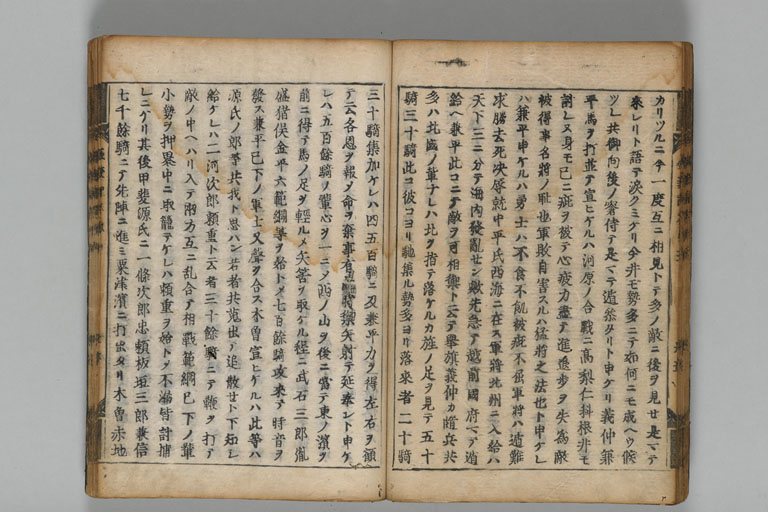 カリツルニ今一度互ニ相見トテ多ノ敵ニ後ヲ見せ是マテ
来レリト語テ涙クミケリ今井モ勢多ニテ如何ニモ成ヘウ候
ツレ共御向後ノ奢侍テ是マテ遁参タリト申ケリ義仲兼
平馬ヲ打並テ宣ヒケルハ河原ノ合戦ニ高梨仁科根井モ
討レヌ身モ已ニ疵ヲ被テ心疲力盡テ進退歩ヲ失為敵
被得事名將ノ耻也軍敗自害スルハ猛將之法也ト申ケレ
ハ兼平申ケルハ勇士ハ不食不飢被疵不屈軍將ハ遁難
求勝去死決辱就中平氏西海ニ在ス軍將北州ニ入給ハ
天下三ニ分テ海内擾乱せン歟先急テ越前國府マテ遁
給ヘ兼平此コニテ敵ヲ可相禦トテ云テ擧旗義仲カ隨兵共
多ハ北國ノ輩ナレハ北ヲ指テ落ケルカ旗ノ足ヲ見テ五十
騎三十騎此コ彼コヨリ馳集ル勢多ヨリ落來者二十騎
三十騎集加ケレハ四五百騎ニ及兼平力ヲ得左右ヲ顧
テ云各恩ヲ報メ命ヲ棄事有禦矢射テ延奉レト申ケ
レハ五百餘騎ヲ輩心ヲ一ニメ西ノ山ヲ後ニ當テ東ノ濱ヲ
前ニ得テ馬ノ足ヲ輕ルメ矢筈ヲ取ケル程ニ武石三郎胤
盛猪俣金平六範綱等ヲ始トメ七百餘騎攻来テ時音ヲ
發ス兼平已下ノ軍士又聲ヲ合ス木曽宣ヒケルハ此等ハ
源氏ノ郎等共我ト思ハン若者共蒐出テ追散せト下知シ
給ケレハ二河次郎頼重ト云者三十餘騎ニテ鞭ヲ打テ
敵ノ中ヘハリ入テ兩方互ニ乱合テ相戰範綱已下ノ輩
小勢ヲ押畏中ニ取籠テケレハ頼重ヲ始トメ不漏皆討捕
レニケリ其後甲斐源氏ニ一條次郎忠頼板垣三郎兼信
七千餘騎ニテ先陣ニ進ミ粟津濱ニ打出タリ木曽赤地